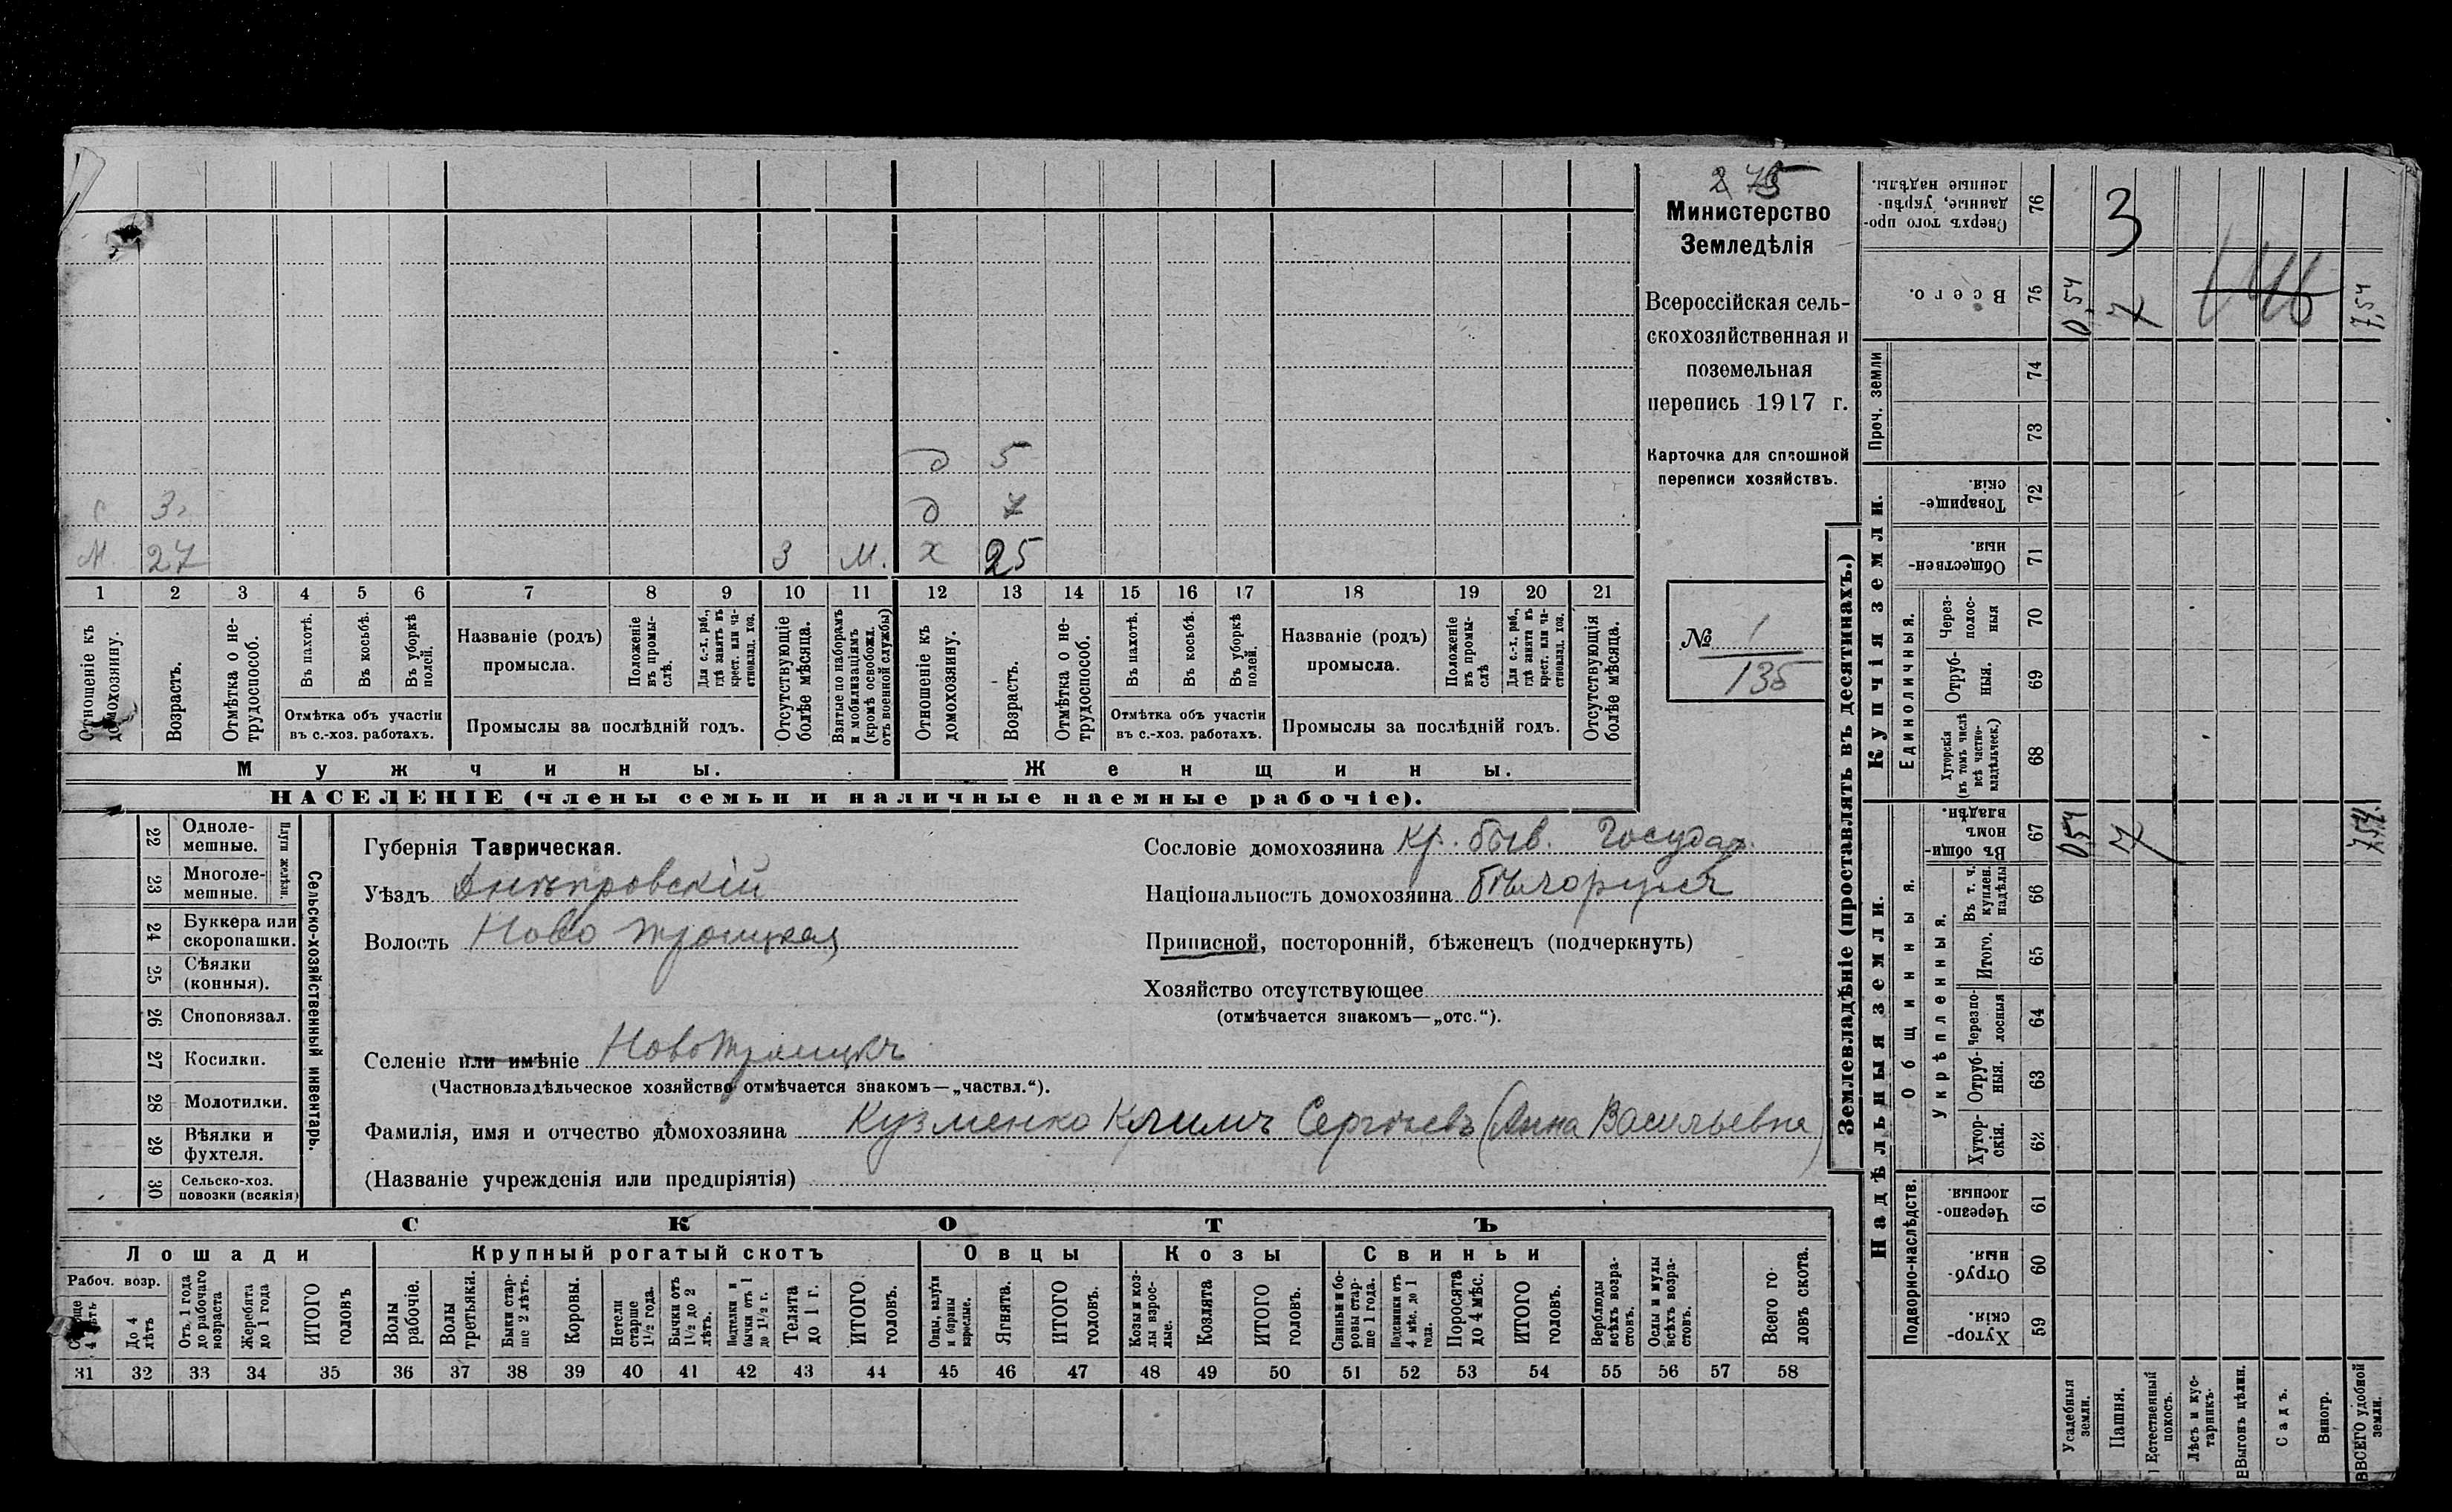 275
Министерство
Земледѣлія
Всероссійская сель-
скохозяйственная и
поземельная
перепись 1917 г.
Карточка для сплошной
переписи хозяйствъ.
№ 1
135
д 5
с 3 д 7
М. 27 3 М. х 25
1 2 3 4 5 6 7 8 9 10 11 12 13 14 15 16 17 18 19 20 21
Отношеніе къ домохозяину.
Возрастъ.
Отмѣтка о не-трудоспособ.
Въ пахотѣ.
Въ косьбѣ.
Въ уборкѣ полей.
Отмѣтка объ участіи
въ с.-хоз. работахъ.
Названіе (родъ)
промысла.
Положеніе въ промы-слѣ.
Для с.-х. раб., гдѣ занятъ въ крест. или ча-стновлад. хоз.
Промыслы за послѣдній годъ.
Отсутствующіе болѣе мѣсяца.
Взятые по наборамъ и мобилизаціямъ (кромѣ освобожд. отъ военной службы)
Отношеніе къ домохозяину.
Возрастъ.
Отмѣтка о не-трудоспособ.
Въ пахотѣ.
Въ косьбѣ.
Въ уборкѣ полей.
Отмѣтка объ участіи
въ с.-хоз. работахъ.
Названіе (родъ)
промысла.
Положеніе въ промы-слѣ
Для с.-х. раб., гдѣ занята въ крест. или ча-стновлад. хоз.
Промыслы за послѣдній годъ.
Отсутствующія болѣе мѣсяца.
Мужчины.
Женщины.
НАСЕЛЕНІЕ (члены семьи и наличные наемные рабочіе).
Сельско-хозяйственный инвентарь.
Плуги желѣзн.
22 Одноле-мешные.
23 Многоле-мешные.
24 Буккера или скоропашки.
25 Сѣялки (конныя).
26 Сноповязал.
27 Косилки.
28 Молотилки.
29 Вѣялки и фухтеля.
30 Сельско-хоз. повозки (всякія)
Губернія Таврическая.
Уѣздъ Днѣпровскій
Волость Ново Троицкая
Селеніе или имѣніе НовоТроицкъ
(Частновладѣльческое хозяйство отмѣчается знакомъ—„частвл.“).
Фамилія, имя и отчество домохозяина Кузменко Климъ Сергѣевъ (Анна Васильевна)
(Названіе учрежденія или предпріятія)
Сословіе домохозяина кр. быв. Государ.
Національность домохозяина
Приписной, посторонній, бѣженецъ (подчеркнуть)
Хозяйство отсутствующее
(отмѣчается знакомъ—„отс.“).
СКОТЪ
Лошади
Крупный рогатый скотъ
Овцы
Козы
Свиньи
Рабоч. возр.
До 4 лѣтъ
Отъ 1 года до рабочаго возраста
Жеребята до 1 года
ИТОГО головъ
Волы рабочіе.
Волы третьяки.
Быки стар-ше 2 лѣтъ.
Коровы.
Нетели старше 1½ года.
Бычки отъ 1½ до 2 лѣтъ.
Подтелки и бычки отъ 1 до 1½ г.
Телята до 1 г.
ИТОГО головъ.
Овцы, валухи и бараны взрослые.
Ягнята.
ИТОГО головъ.
Козы и коз-лы взрос-лые.
Козлята
ИТОГО головъ.
Свиньи и бо-ровы стар-ше 1 года.
Подсвинки отъ 4 мѣс. до 1 года.
Поросята до 4 мѣс.
ИТОГО головъ.
Верблюды всѣхъ возра-стовъ.
Ослы и мулы всѣхъ возра-стовъ.
Всего го-ловъ скота.
31 32 33 34 35 36 37 38 39 40 41 42 43 44 45 46 47 48 49 50 51 52 53 54 55 56 57 58
Землевладѣніе (проставлять въ десятинахъ.)
Надѣльныя земли.
Купчія земли.
Проч. земли
Подворно-наслѣдств.
Общинныя.
Укрѣпленныя.
Единоличныя.
76 Сверхъ того про-данные, укрѣп-ленные надѣлы. 3
75 Всего. 0,54 7 7,54
74
73
72 Товарище-скія.
71 Обществен-ныя.
70 Через-полос-ныя
69 Отруб-ныя.
68 Хуторскія (въ томъ числѣ всѣ частно-владѣльческ.)
67 Въ общин-номъ владѣн. 0,54 7 7,54.
66 Въ т. ч. куплен. надѣлы
65 Итого.
64 Черезпо-лосныя
63 Отруб-ныя.
62 Хутор-скія.
61 Черезпо-лосныя.
60 Отруб-ныя.
59 Хутор-скія.
Усадебныя земли.
Пашня.
Естественный покосъ.
Лѣсъ и кус-тарникъ.
Выгонъ цѣлин.
Садъ.
Виногр.
ВСЕГО удобной земли.